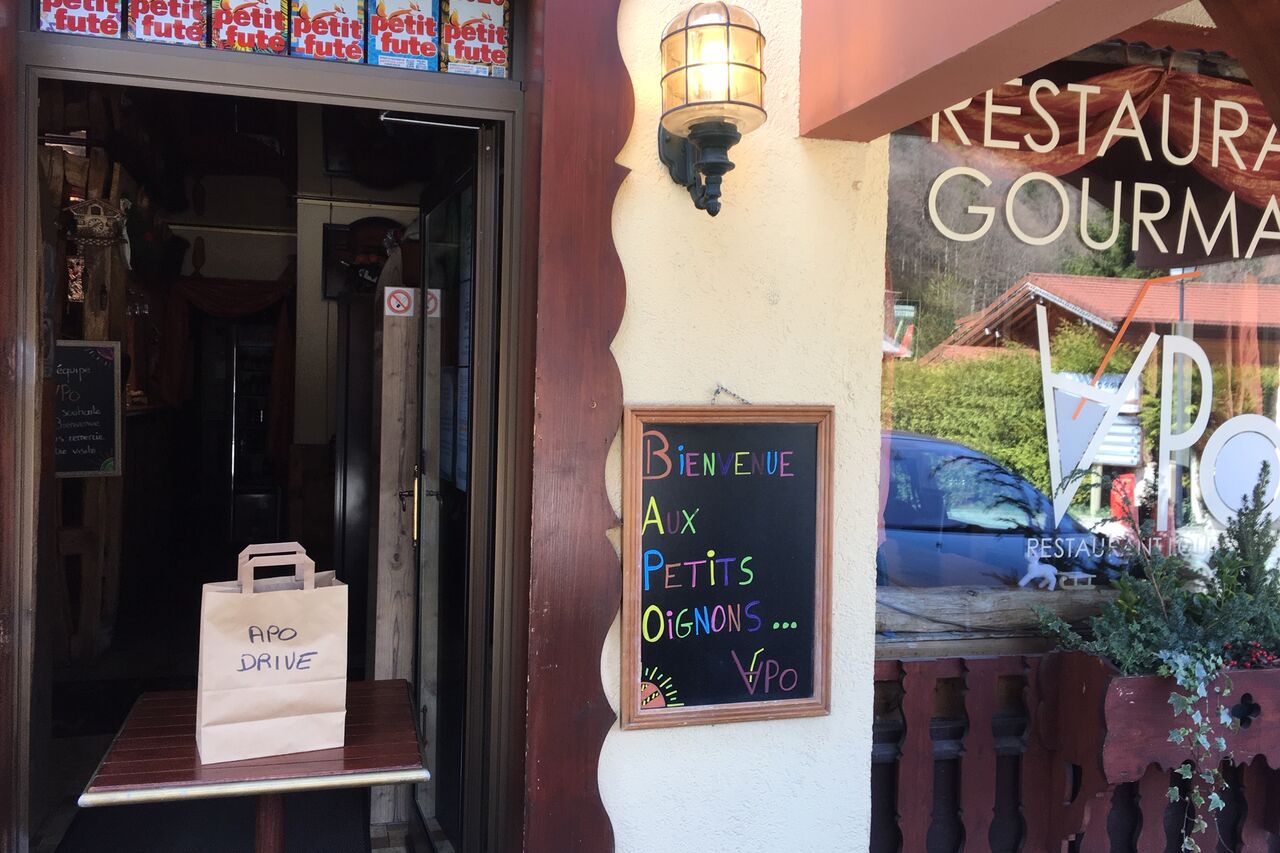 petit futé
petit futé
petit futé
petit futé
petit futé
petit futé
RESTAURA
GOURMA
équipe
souhaite
Bienvenue
remercie
visite
BIENVENUE
AUX
PETITS
OIGNONS...
APO
APO
DRIVE
APO
RESTAURANT